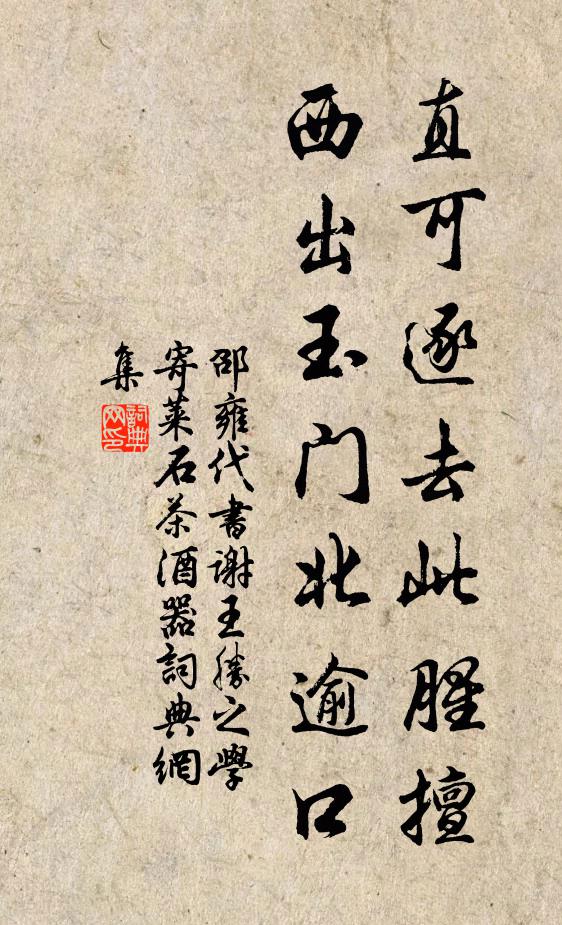 直可逐去此腥擅
西出玉门北逾口
邵雍代书謝王勝之學
寄莱石茶酒器詞典網
集
詞典
网印